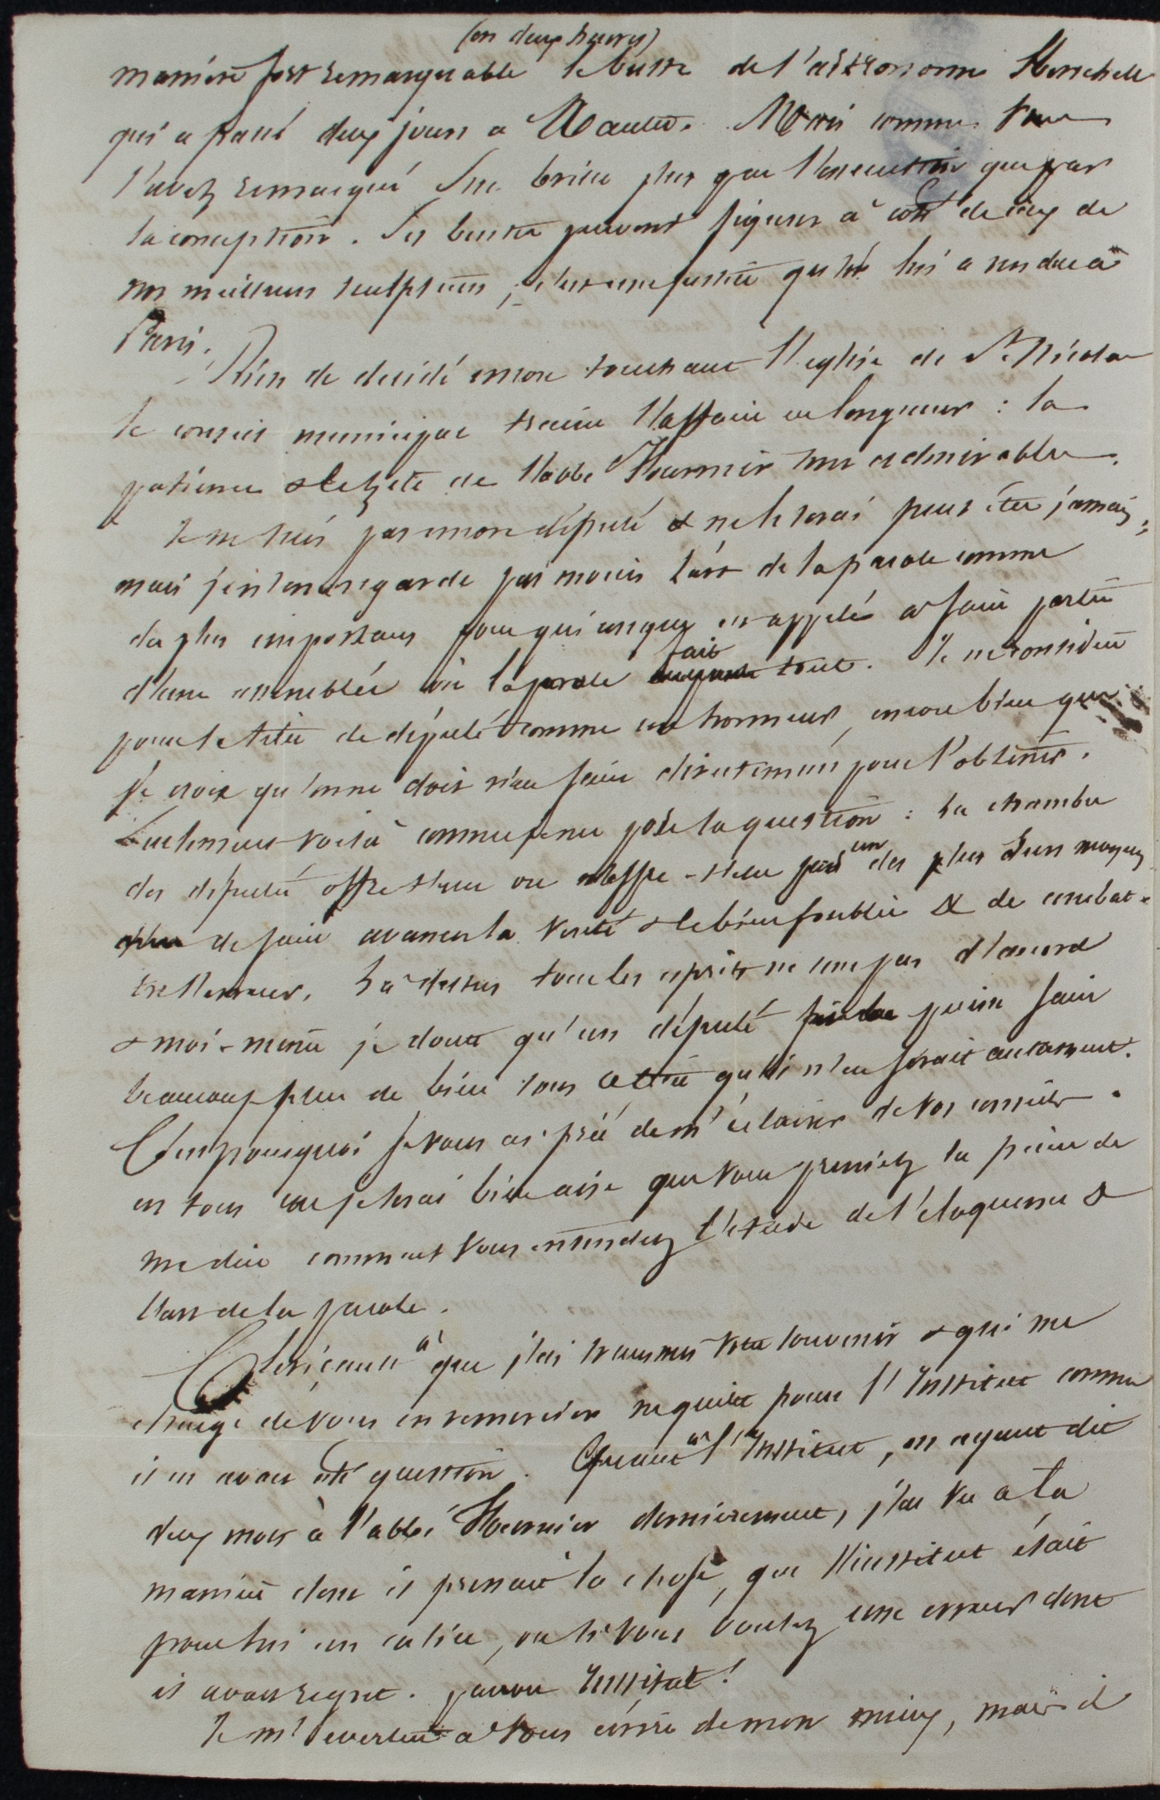 (en deux heures)
manière fort remarquable le buste de l'astronome Herschell
qui a passé deux jours a Nantes. Mais comme vous
l'avez remarqué Sue brille plus par l'execution que par
la conception. Ses bustes peuvent figurer à coté de ceux de
nos meilleurs sculpteurs, c'est une justice qu'on lui a rendue à
Paris.
Rien de decidé encore touchant l'eglise de St Nicolas
le conseil municipal traine l'affaire en longueur : la
patience & le zele de l'abbé Fournier sont admirables.
Je ne suis pas encore député & ne le serai peut être jamais,
mais je n'en regarde pas moins l'art de la parole comme
des plus importans pour quiconque est appelé a faire partie
d'une assemblée où la parole fait tout. Je ne considere
pour le titre de député comme un honneur, encore bien que
je crois qu'on ne doit rien faire directement pour l'obtenir.
Seulement voilà comme je me pose la question : la chambre
des députés offre-t-elle ou n'offre-t-elle pas un des plus surs moyens
de faire avancer la verité & le bien public & de combat-
tre l'erreur. La dessus tous les esprits ne sont pas d'accord
& moi-même je doute qu'un député puisse faire
beaucoup plus de bien sous ce titre qu'il n'en ferait autrement.
C'est pourquoi je vous ai prié de m'éclairer de vos conseils.
en tous cas je serai bien aise que vous preniez la peine de
me dire comment vous entendez l'etude de l'éloquence &
l'art de la parole.
à que j'ai transmis votre souvenir & qui me
charge de vous en remercier ne quitte pas l'Institut comme
il en avait été question. Quant à l'Institut, en ayant dit
deux mots à l'abbé Fournier dernierement, j'ai vu a la
maniere dont il prenait la chose, que l'institut était
pour lui un calice, ou si vous voulez une erreur dont
il avait regret. pauvre Institut!
Je m'evertue a vous écrire de mon mieux, mais il